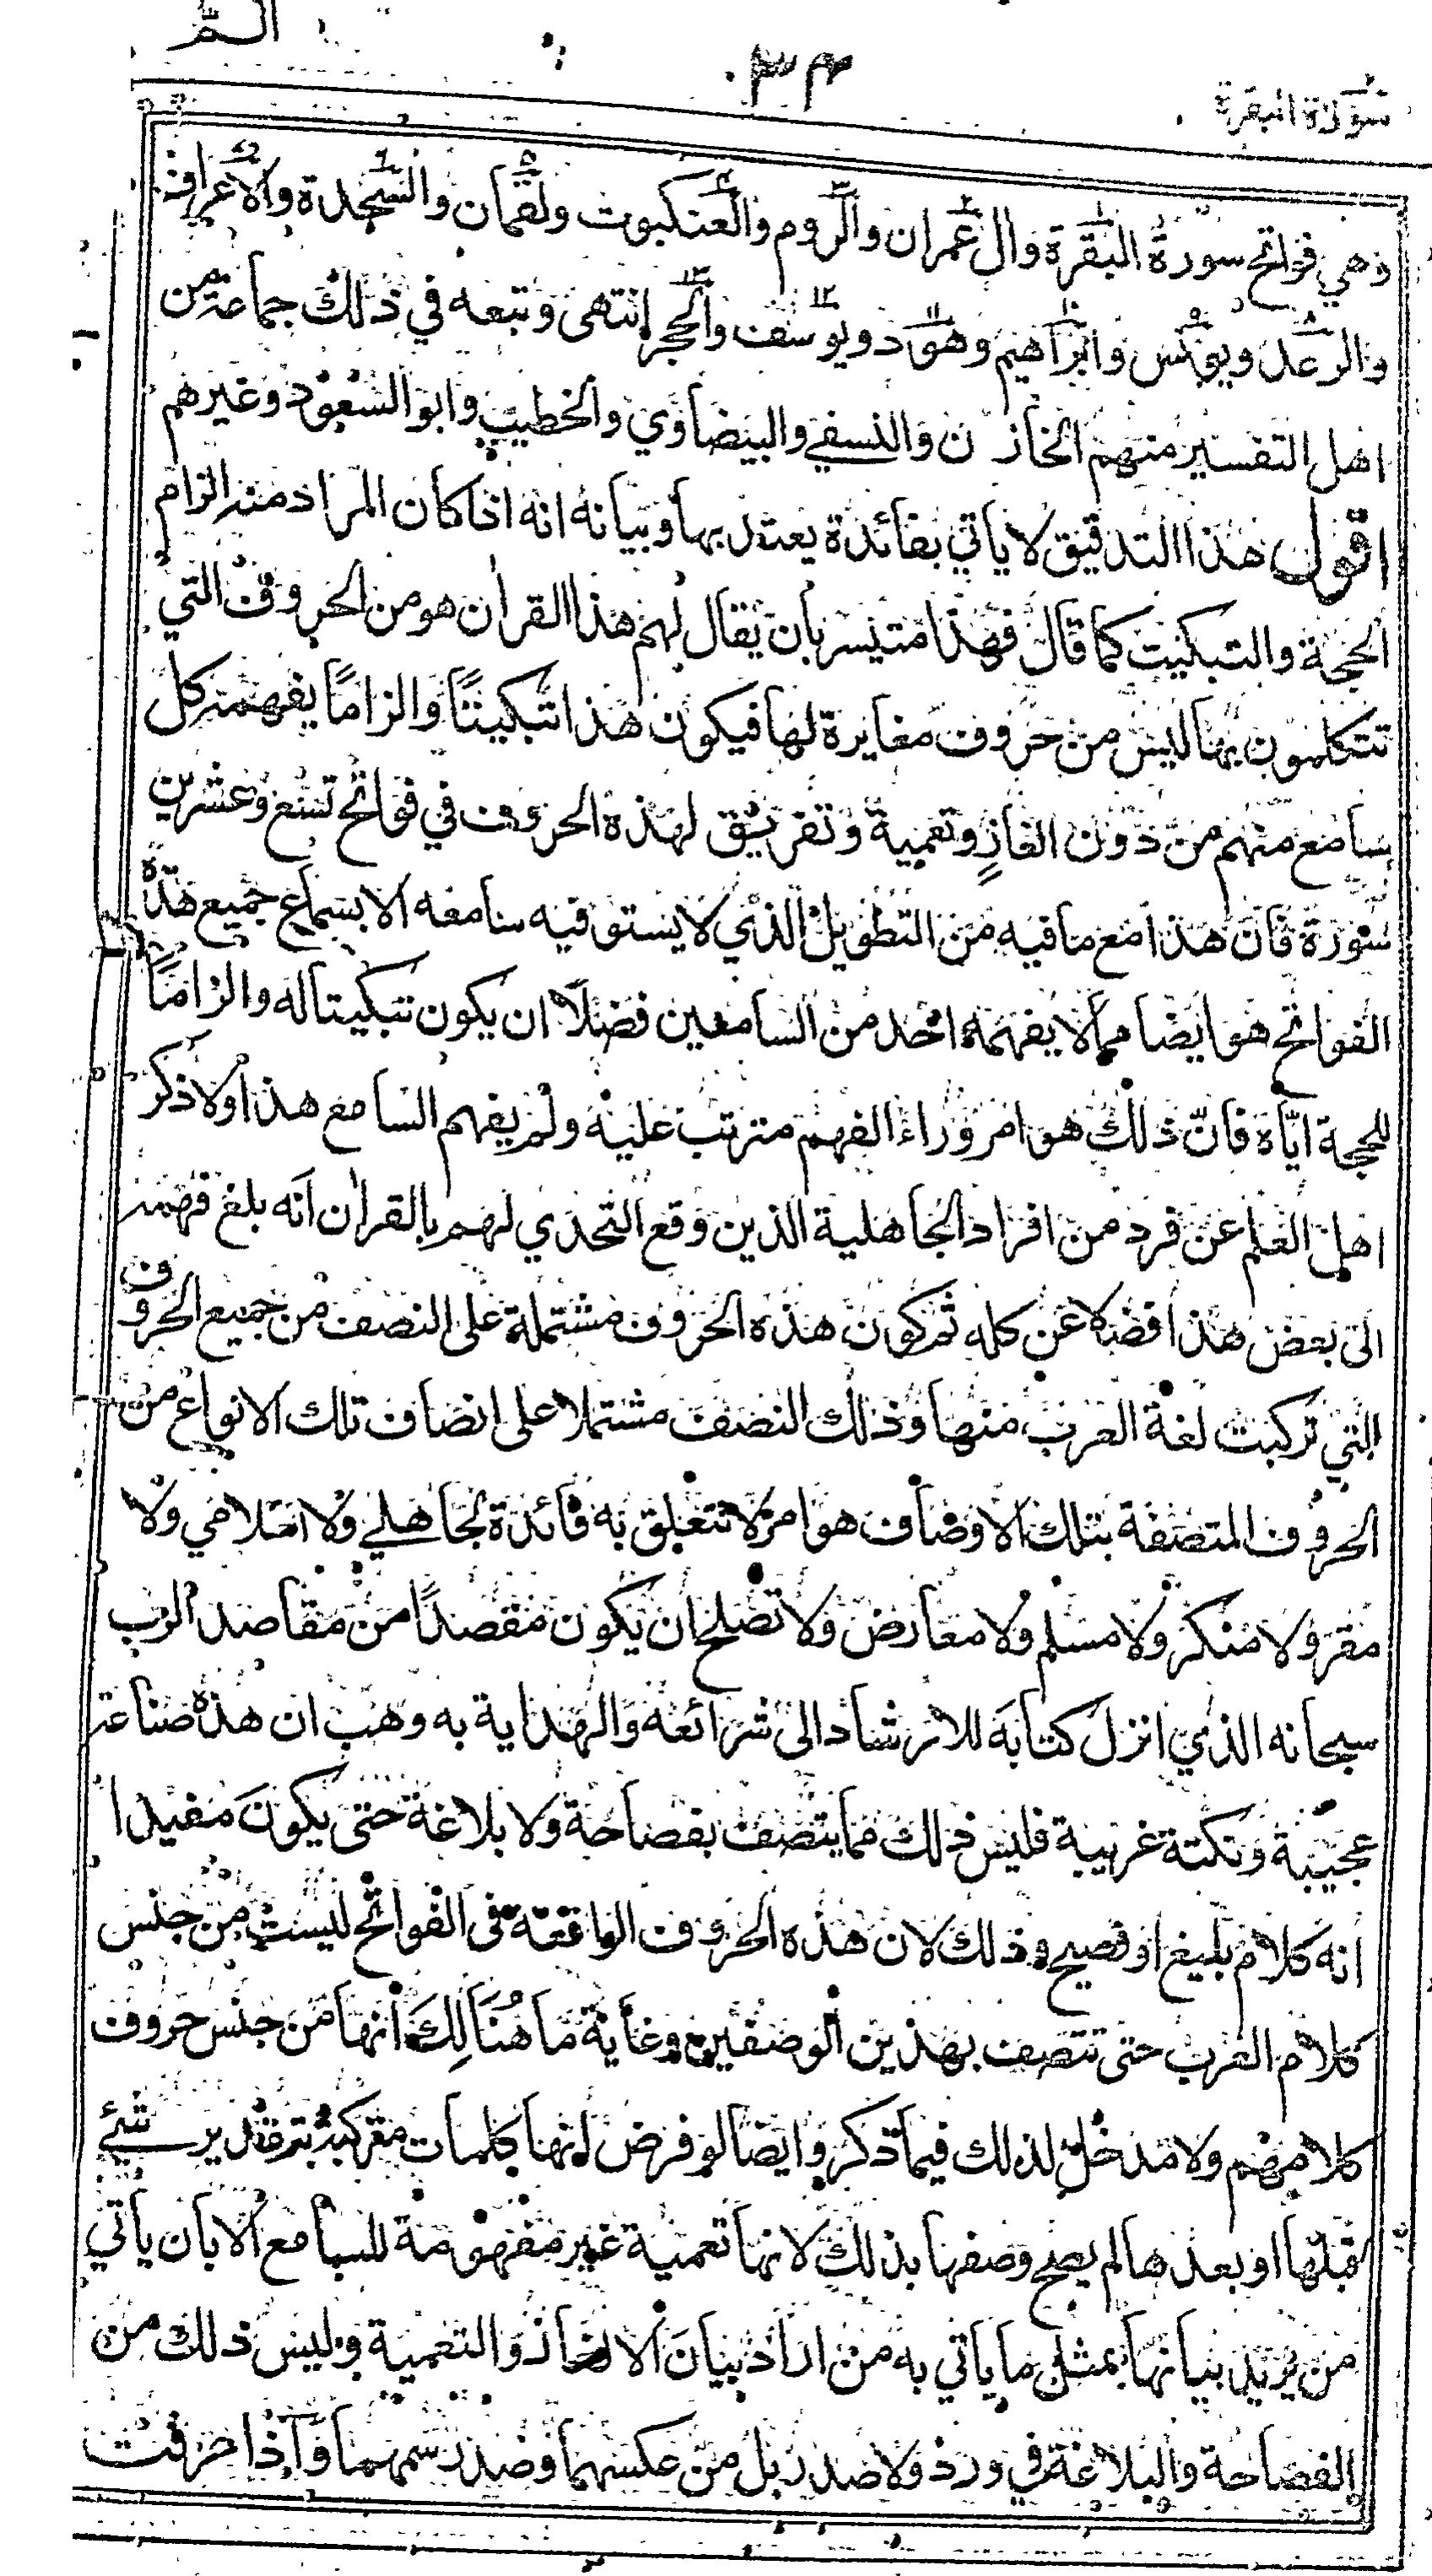 الـم
٣٤
سورة البقرة
وهي فواتح سورة البقرة وال عمران والروم والعنكبوت ولقمان والسجدة والاعراف
والرعد ويونس وابراهيم وهود ويوسف والحجر انتهى وتبعه في ذلك جماعة من
اهل التفسير منهم الخازن والنسفي والبيضاوي والخطيب وابو السعود وغيرهم
اقول هذا التدقيق لا ياتي بفائدة يعتد بها وبيانه انه اذا كان المراد منه الزام
الحجة والتبكيت كما قال فهذا متيسر بأن يقال لهم هذا القران هو من الحروف التي
تتكلمون بها ليس من حروف مغايرة لها فيكون هذا تبكيتًا والزامًا يفهمه كل
سامع منهم من دون الغازٍ وتعمية وتفريق لهذه الحروف في فواتح تسع وعشرين
سورة فان هذا مع ما فيه من التطويل الذي لا يستوفيه سامعه الا بسماع جميع هذه
الفواتح هو ايضا مما لا يفهمه احد من السامعين فضلا ان يكون تبكيتا له والزامًا
للحجة ايّاه فانّ ذلك هو امر وراء الفهم مترتب عليه ولم يفهم السامع هذا ولا ذكر
اهل العلم عن فرد من افراد الجاهلية الذين وقع التحدي لهم بالقران انه بلغ فهمه
الى بعض هذا فضلا عن كله ثم كون هذه الحروف مشتملة على النصف من جميع الحروف
التي تركبت لغة العرب منها وذلك النصف مشتملا على انصاف تلك الانواع من
الحروف المتصفة بتلك الاوصاف هو امر لا تتعلق به فائدة لجاهلي ولا اسلامي ولا
مقر ولا منكر ولا مسلم ولا معارض ولا تصلح ان يكون مقصدًا من مقاصد الرب
سبحانه الذي انزل كتابه للارشاد الى شرائعه والهداية به وهب ان هذه صناعة
عجيبة ونكتة غريبة فليس ذلك مما يتصف بفصاحة ولا بلاغة حتى يكون مفيدا
انه كلام بليغ او فصيح وذلك لان هذه الحروف الواقعة في الفواتح ليست من جنس
كلام العرب حتى تتصف بهذين الوصفين وغاية ما هُنَالِكَ انها من جنس حروف
كلامهم ولا مدخل لذلك فيما ذكر وايضا لو فرض انها كلمات متركبة بتقدير شيء
قبلها او بعدها لم يصح وصفها بذلك لانها تعمية غير مفهومة للسامع الا بان يأتي
من يريد بيانها بمثل ما ياتي به من اراد بيان الالغاز والتعمية وليس ذلك من
الفصاحة والبلاغة في ورد ولا صدر بل من عكسهما وضد رسمهما واذا عرفت